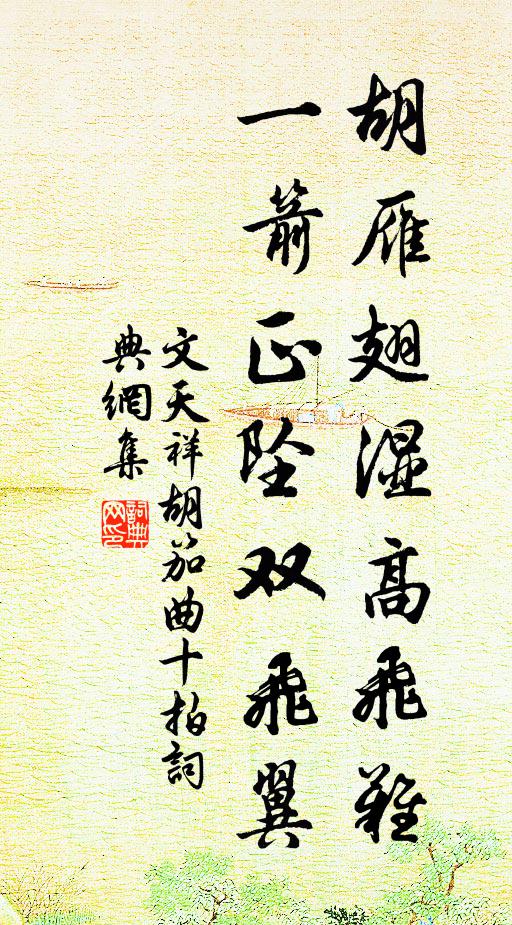 胡雁翅湿高飛難
一箭正坠双飛翼
文天祥胡笳曲十拍詞
典網集
詞典
网印